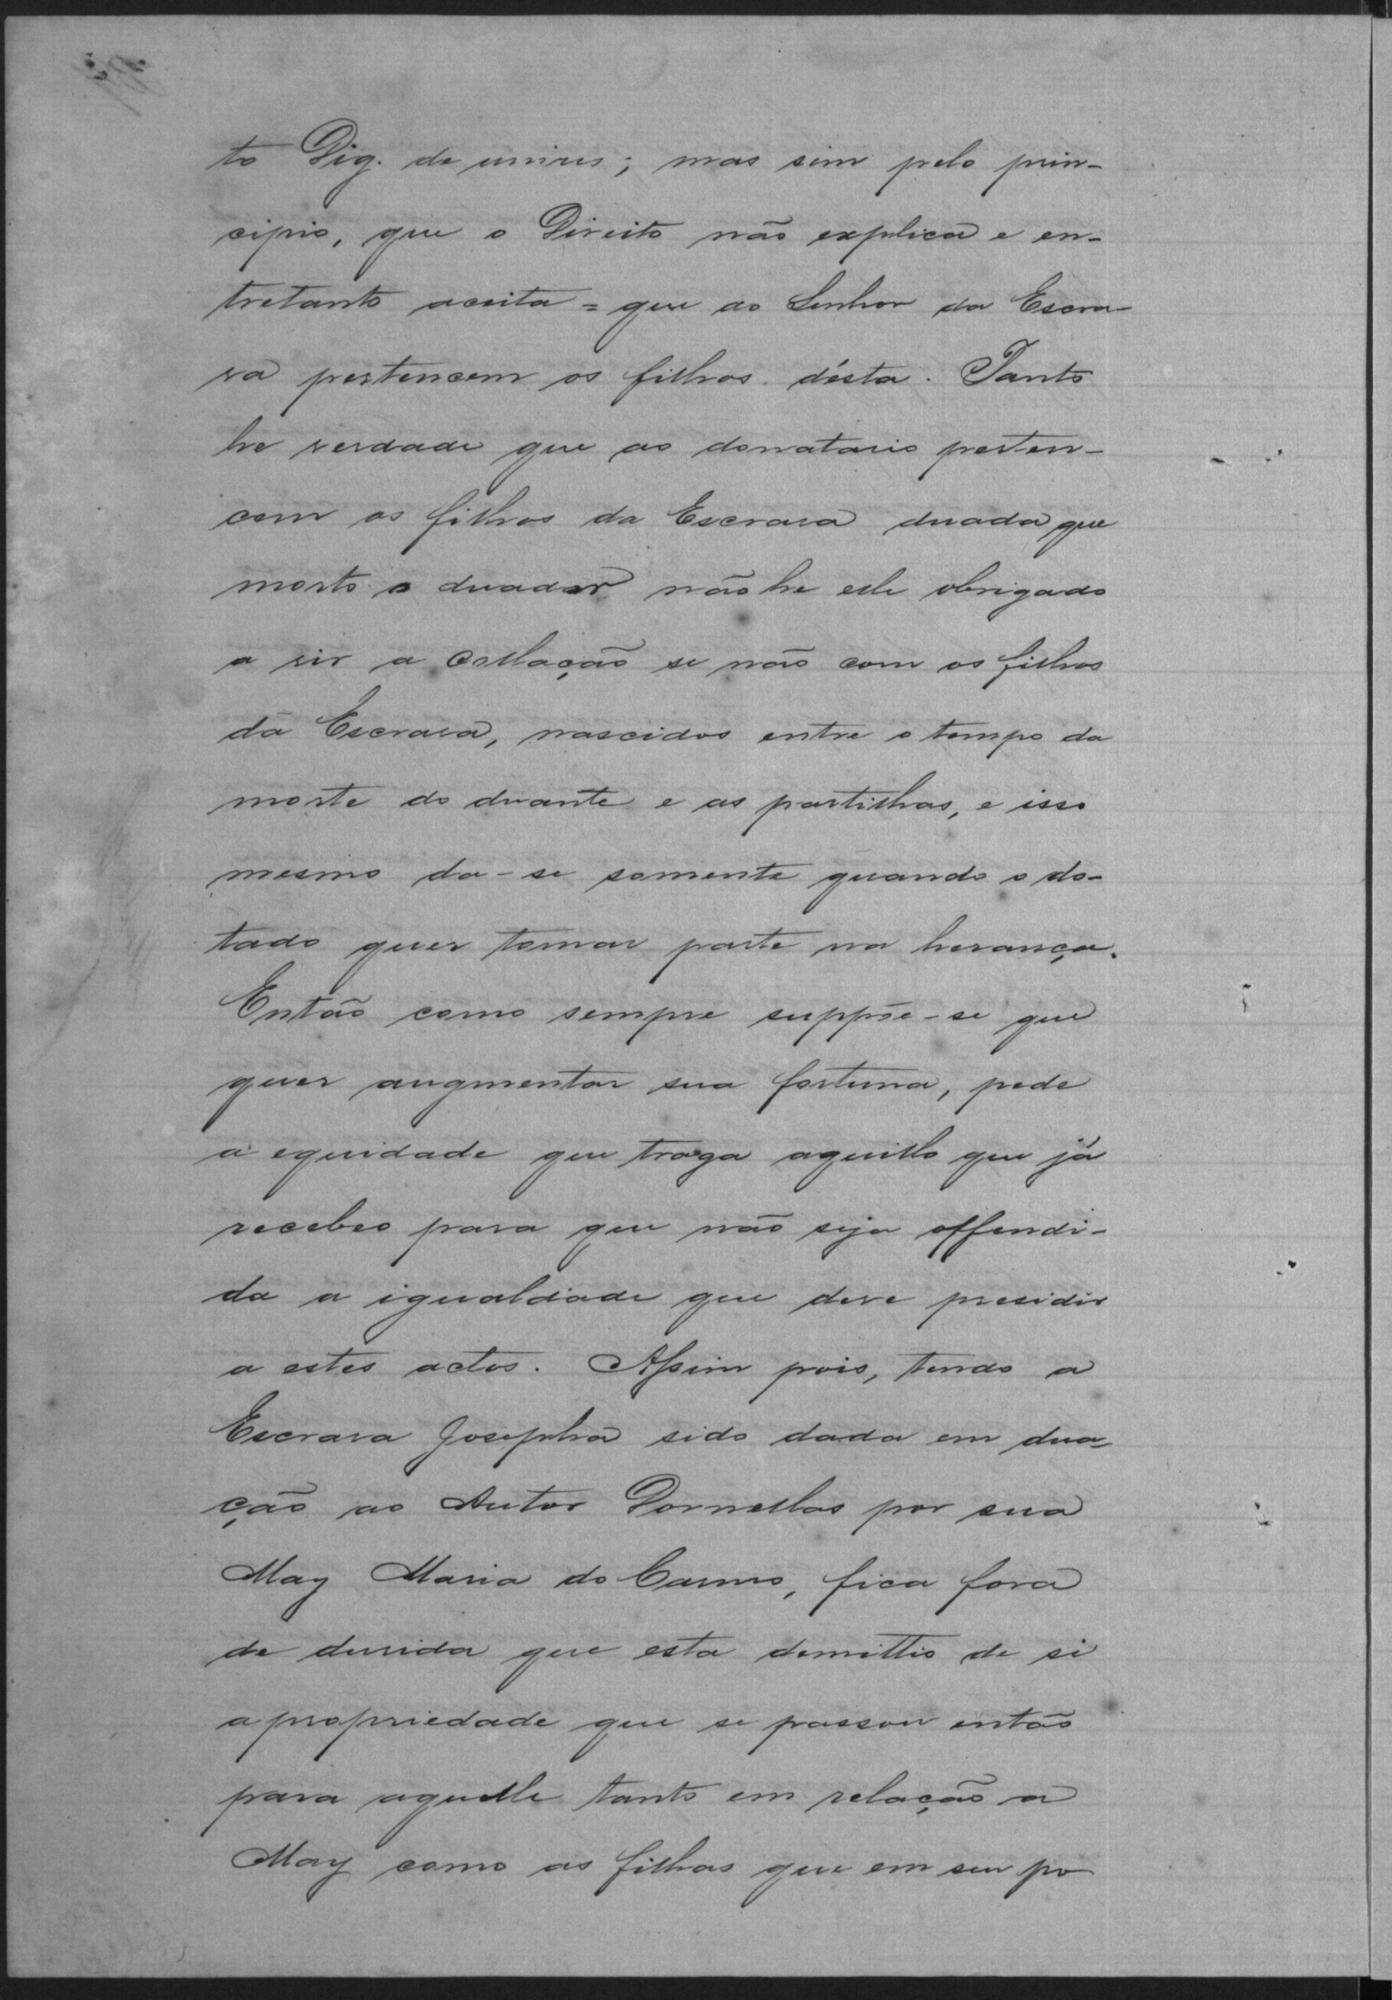 to Dig. de usuris; mas sim pelo prin-
cipio, que o Direito não explica e en-
tretanto aceita = que ao Senhor da Escra-
va pertencem os filhos désta. Tanto
he verdade que ao donatario perten-
cem os filhos da Escrava duada que
morto o duador não he este obrigado
a vir a Collação se não com os filhos
da Escrava, nascidos entre o tempo da
morte do duante e as partilhas, e isso
mesmo da-se somente quando o do-
tado quer tomar parte na herança.
Então como sempre suppõe-se que
quer augmentar sua fortuna, pede
a equidade que traga aquillo que já
recebeo para que não seja offendi-
da a igualdade que deve presidir
a estes actos. Assim pois, tendo a
Escrava Josepha sido dada em dua-
ção ao Autor Dornellas por sua
May Maria do Carmo, fica fora
de duvida que esta demittio de si
a propriedade que se passou então
para aquelle tanto em relação a
May como as filhas que em seu po